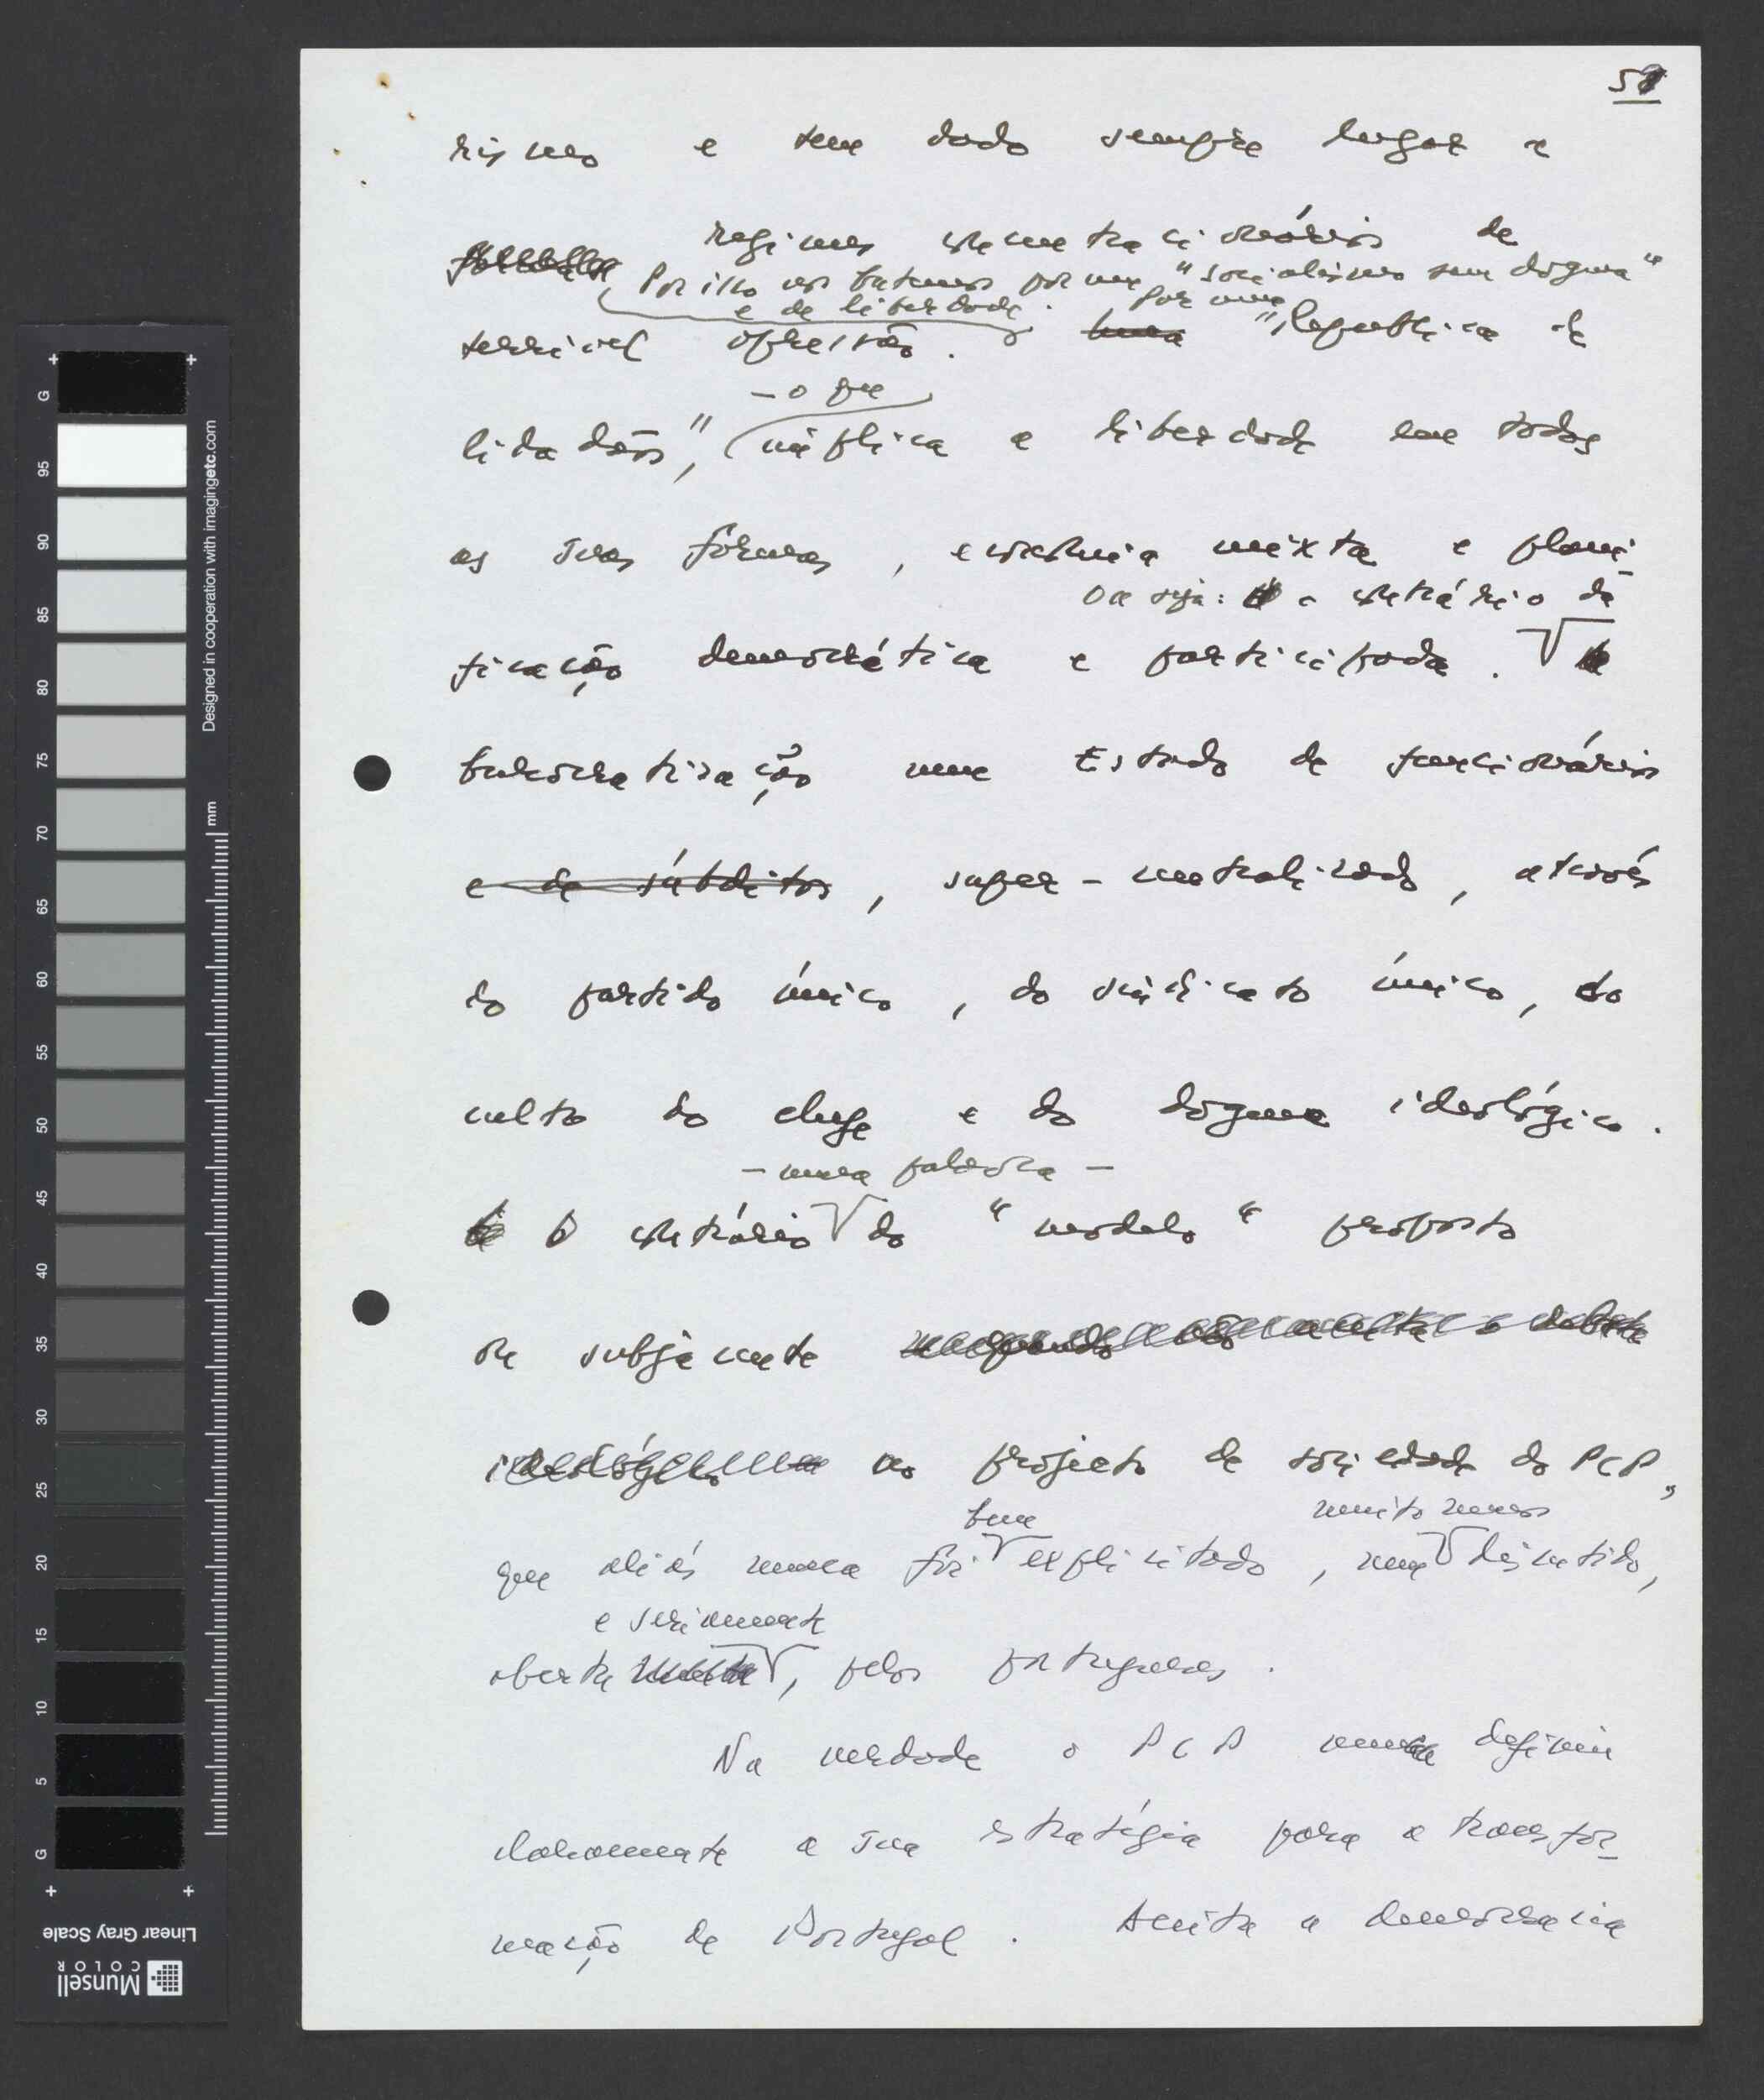 59
rismo e tem dado sempre lugar a
regimes concentracionários de
Por isso nos batemos por um "socialismo sem dogma"
e de liberdade. por uma
terrível opressão. Uma "República de
– o que
cidadãos", implica a liberdade em todas
as suas formas, economia mixta e plani-
ou seja: o contrário da
ficação democrática e participada.
burocratização num Estado de funcionários
e de súbditos, super-centralizado, através
do partido único, do sindicato único, do
culto do chefe e do dogma ideológico.
– numa palavra –
O contrário do "modelo" proposto
ou subjacente quando não aceita o debate
ideológico no projecto de sociedade do PCP,
bem muito menos
que aliás nunca foi explicitado, nem discutido,
e seriamente
aberta, pelos portugueses.
Na verdade o PCP nunca definiu
claramente a sua estratégia para a transfor-
mação de Portugal. Aceita a democracia
Designed in cooperation with imagingetc.com
mm
G 95 90 85 80 75 70 65 60 55 50 45 40 35 30 25 20 15 10 5 G
Linear Gray Scale
Munsell
COLOR